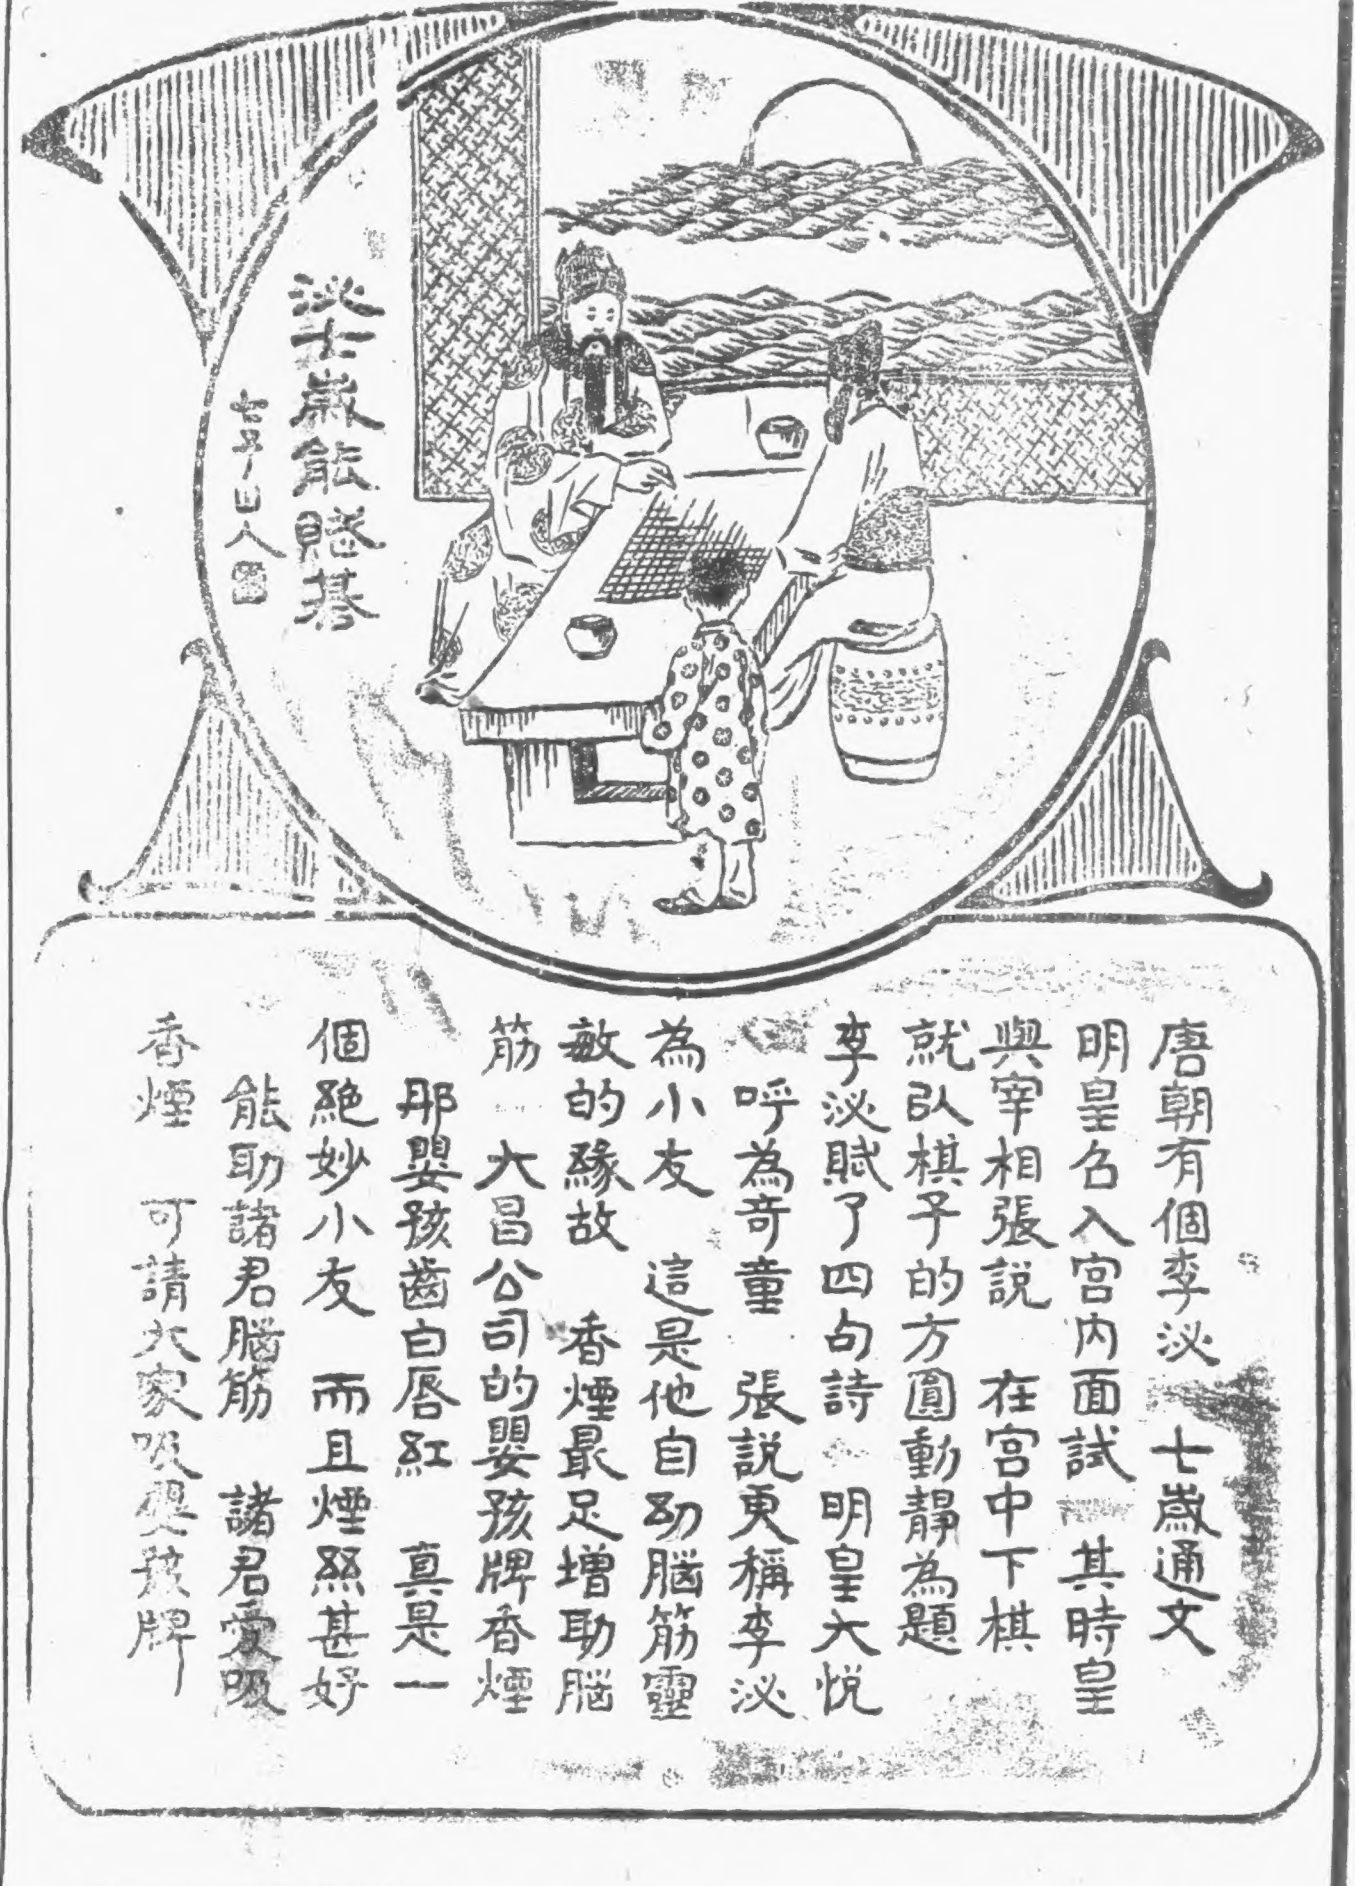 泌士歲能賦棊
唐朝有個李泌　七歲通文
明皇召入宮內面試　其時皇
與宰相張說　在宮中下棋
就以棋子的方圓動靜為題
李泌賦了四句詩　明皇大悅
呼為奇童　張說更稱李泌
為小友　這是他自幼腦筋靈
敏的緣故　香煙最足增助腦
筋　大昌公司的嬰孩牌香煙
那嬰孩齒白唇紅　真是一
個絕妙小友　而且煙絲甚好
能助諸君腦筋　諸君愛吸
香煙　可請大家吸嬰孩牌